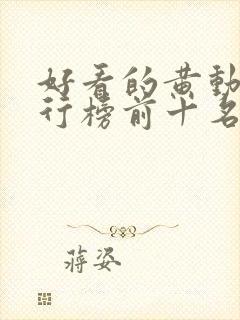 好看的黄動
行榜前十名
蔣姿